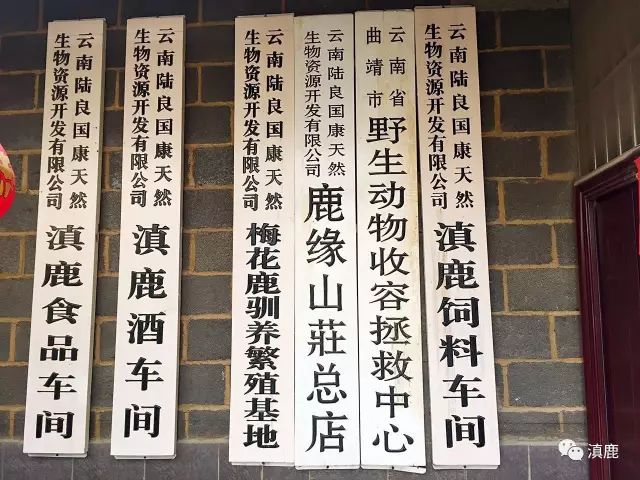 云南陆良国康天然
生物资源开发有限公司
滇鹿食品车间
云南陆良国康天然
生物资源开发有限公司
滇鹿酒车间
云南陆良国康天然
生物资源开发有限公司
梅花鹿驯养繁殖基地
云南陆良国康天然
生物资源开发有限公司
鹿缘山莊总店
云南省
曲靖市
野生动物收容拯救中心
云南陆良国康天然
生物资源开发有限公司
滇鹿饲料车间
滇鹿